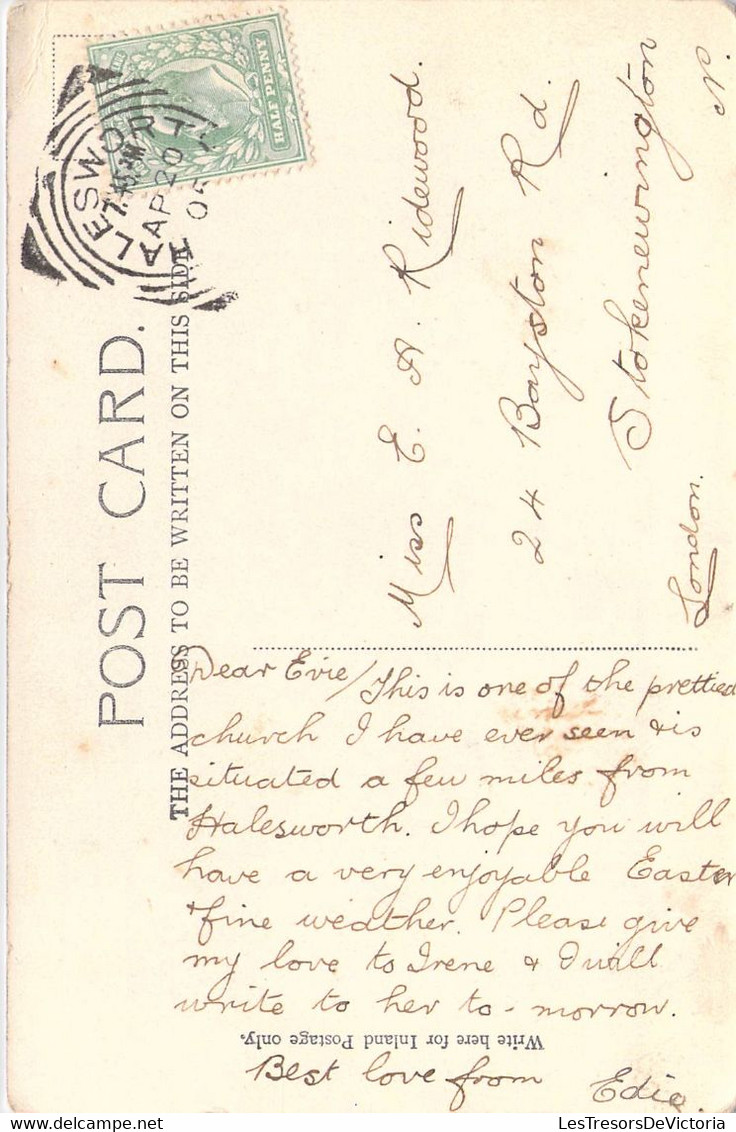 POST CARD.
THE ADDRESS TO BE WRITTEN ON THIS SIDE
HALF PENNY
HALESWORTH
7.45 AM
AP 20
05
Miss E. A. Ridewood.
24 Bayston Rd.
Stokenewington
London.
Dear Evie/This is one of the prettied
church I have ever seen & is
situated a few miles from
Halesworth. I hope you will
have a very enjoyable Easter
& fine weather. Please give
my love to Irene & I will
write to her to-morrow.
Write here for Inland Postage only.
Best love from Edie.
LesTresorsDeVictoria